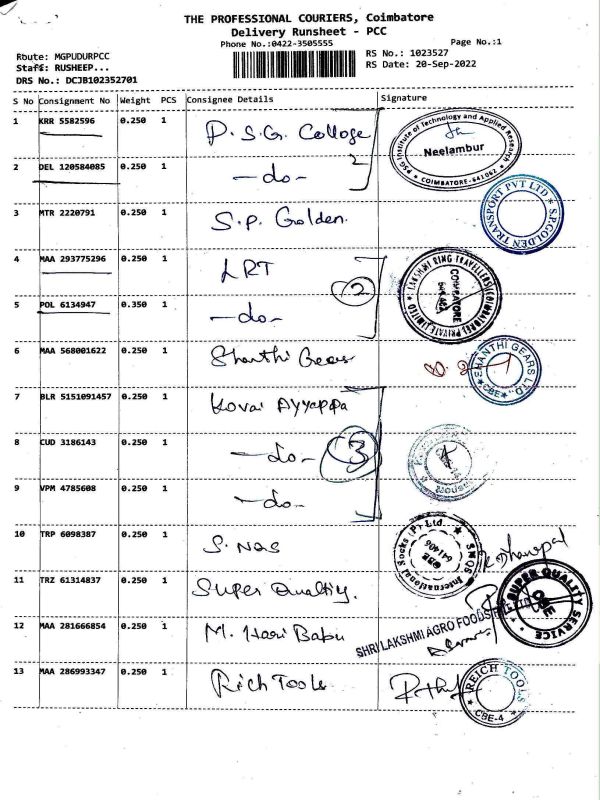 THE PROFESSIONAL COURIERS, Coimbatore
Delivery Runsheet - PCC
Phone No.:0422-3505555
Page No.:1
Route: MGPUDURPCC
RS No.: 1023527
Staff: RUSHEEP...
RS Date: 20-Sep-2022
DRS No.: DCJB102352701
S No Consignment No Weight PCS Consignee Details Signature
1 KRR 5582596 0.250 1 P.S.G. College
PSG Institute of Technology and Applied Research
Neelambur
COIMBATORE-641062
2 DEL 120584085 0.250 1 -do- 2
3 MTR 2220791 0.250 1 S.P. Golden.
S.P.GOLDEN TRANSPORT PVT LTD
4 MAA 293775296 0.250 1 LRT
2
LAKSHMI RING TRAVELLERS (COIMBATORE) PRIVATE LIMITED
COIMBATORE
5 POL 6134947 0.350 1 -do-
6 MAA 568001622 0.250 1 Shanthi Gears
SHANTHI GEARS LTD.
CBE
7 BLR 5151091457 0.250 1 Kovai Ayyappa
8 CUD 3186143 0.250 1 -do- 3
9 VPM 4785608 0.250 1 -do-
10 TRP 6098387 0.250 1 S. NQS
SMQS International Socks (P) Ltd.
641406
11 TRZ 61314837 0.250 1 Super Quality.
SUPER QUALITY SERVICE
CBE
12 MAA 281666854 0.250 1 M. Hari Babu
SHRI LAKSHMI AGRO FOODS
13 MAA 286993347 0.250 1 Rich Tools
REICH TOOLS
CBE-4